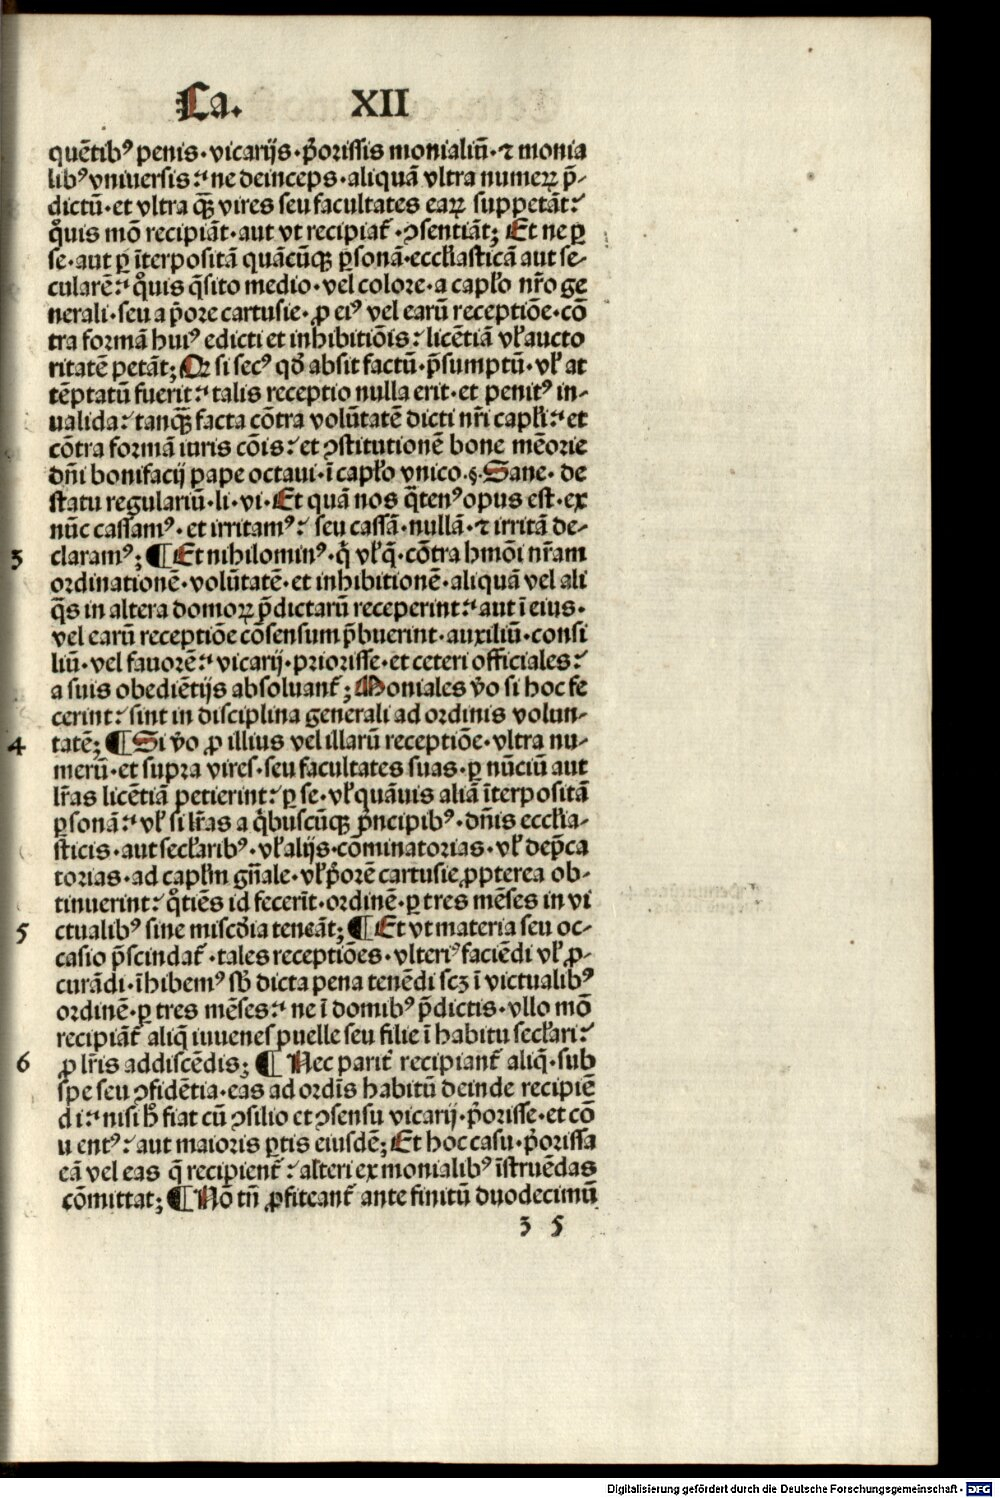 Ca. XII
quētibꝰ penis·vicarijs·p̄orissis monialiū·⁊ monia
libꝰ vniuersis:' ne deinceps·aliquā vltra numerꝝ p̄-
dictū·et vltra qꝫ̄ vires seu facultates earꝝ suppetāt:'
qͦuis mō recipiāt·aut vt recipiat᷑·ꝯsentiāt; Et ne ꝑ
se·aut ꝑ īterpositā quācūqꝫ ꝑsonā·eccl̄iasticā aut se-
cularē:' qͦuis q̄sito medio·vel colore·a capl̄o nr̄o ge
nerali·seu a p̄ore cartusie·ꝓ eiꝰ vel earū receptiōe·cō
tra formā huiꝰ edicti et inhibitiōis:' licētiā vl̄ aucto
ritatē petāt; Qꝛ si secꝰ qđ absit factū·p̄sumptū·vl̄ at
tēptatū fuerit:' talis receptio nulla erit·et penitꝰ in-
ualida:' tanqꝫ̄ facta cōtra volūtatē dicti nr̄i capl̄i:' et
cōtra formā iuris cōis:' et ꝯstitutionē bone mēorie
dn̄i bonifacij pape octaui·ī capl̄o vnico.§.Sane·de
statu regulariū·li·vi·Et quā nos q̄tenꝰ opus est·ex
nūc cassamꝰ·et irritamꝰ:' seu cassā·nullā·⁊ irritā de-
3 claramꝰ; ¶ Et nihilominꝰ·q̇ vl̄ q̄·cōtra hmōi nr̄am
ordinationē·volūtatē·et inhibitionē·aliquā vel ali
q̄s in altera domorꝝ p̄dictarū receperint:' aut ī eius·
vel earū receptiōe cōsensum p̄buerint·auxiliū·consi
liū·vel fauorē:' vicarij·priorisse·et ceteri officiales:'
a suis obediētijs absoluant᷑; Moniales v̄o si hoc fe
cerint:' sint in disciplina generali ad ordinis volun-
4 tatē; ¶ Si v̄o ꝓ illius vel illarū receptiōe·vltra nu-
merū·et supra vires·seu facultates suas·ꝑ nūciū aut
lr̄as licētiā petierint:' ꝑ se·vl̄ quāuis aliā īterpositā
ꝑsonā:' vl̄ si lr̄as a q̇buscūqꝫ p̄ncipibꝰ·dn̄is eccl̄ia-
sticis·aut secl̄aribꝰ·vl̄ alijs·cōminatorias·vl̄ dep̄ca
torias·ad capl̄m gn̄ale·vl̄ p̄orē cartusie ꝓpterea ob-
tinuerint:' qͦtiēs id fecerīt·ordinē·ꝑ tres mēses in vi
5 ctualibꝰ sine miscđia teneāt; ¶ Et vt materia seu oc-
casio p̄scindat᷑·tales receptiōes·vlteriꝰ faciēdi vl̄ ꝓ-
curādi·īhibemꝰ sb̄ dicta pena tenēdi scꝫ ī victualibꝰ
ordinē·ꝑ tres mēses:' ne ī domibꝰ p̄dictis·vllo mō
recipiāt᷑ aliq̄ iuuenes puelle seu filie ī habitu secl̄ari:'
6 ꝓ lr̄is addiscēdis; ¶ Nec parit᷑ recipiant᷑ aliq̄·sub
spe seu ꝯfidētia·eas ad ordīs habitū deinde recipiē
di:' nisi h̄ fiat cū ꝯsilio et ꝯsensu vicarij·p̄orisse·et cō
u entꝰ:' aut maioris ꝑtis eiusdē; Et hoc casu·p̄orissa
eā vel eas q̄ recipient᷑:' alteri ex monialibꝰ īstruēdas
cōmittat; ¶ Nō tn̄ ꝓfiteant᷑ ante finitū duodecimū
3 5
Digitalisierung gefördert durch die Deutsche Forschungsgemeinschaft · DFG